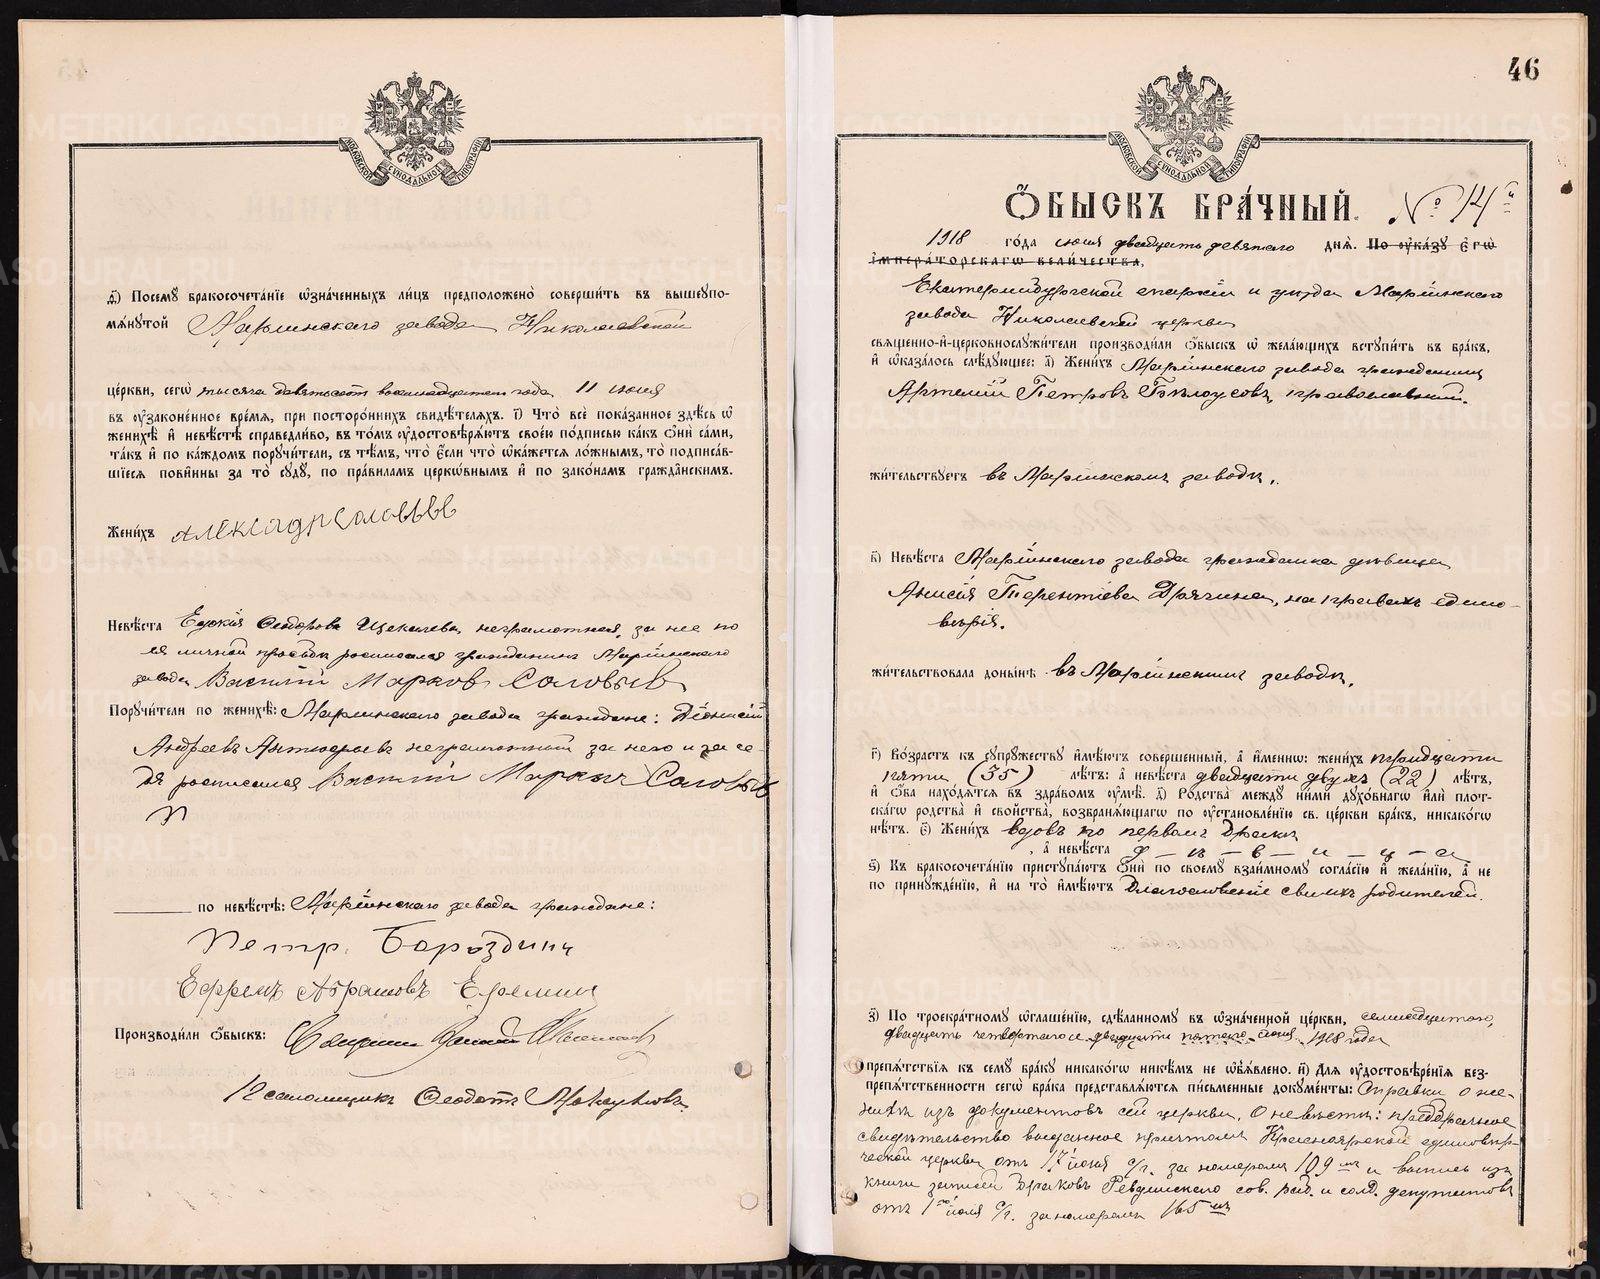 МОСКОВСКОЙ СѴНОДАЛЬНОЙ ТИПОГРАФІИ
д҃) Посемꙋ̀ бракосочета́нїе ѡ҆зна́ченныхъ ли́цъ предположено̀ соверши́ть въ вышеꙋпо-
мѧ́нꙋтой Маріинскаго завода Николаевской
це́ркви, сегѡ̀ тысяча девятьсотъ восемнадцатаго года 11 июня
въ ᲂу҆зако́ненное вре́мѧ, при посторо́ннихъ свидѣ́телѧхъ. і҃) Что̀ всѐ пока́занное здѣ́сь ѡ҆
женихѣ̀ и҆ невѣ́стѣ справедли́во, въ то́мъ ᲂу҆достовѣрѧ́ютъ свое́ю по́дписью ка́къ ѻ҆нѝ са́ми,
та́къ и҆ по ка́ждомъ порꙋчи́тели, съ тѣ́мъ, что̀ є҆́сли что̀ ѡ҆ка́жетсѧ ло́жнымъ, то̀ подписа́в-
шїесѧ пови́нны за то̀ сꙋдꙋ̀, по пра́виламъ церкѡ́внымъ и҆ по зако́намъ гражда́нскимъ.
Жени́хъ Александръ Соловьевъ
Невѣ́ста Евдокія Ѳеодорова Щекалева, неграмотная, за нее по
ея личной просьбѣ росписался гражданинъ Маріинскаго
завода Василий Марков Соловьев
Порꙋчи́тели по женихѣ̀: Маріинскаго завода граждане: Діонисій
Андреевъ неграмотный за него и за се-
бя росписался Василий Марков Соловьев
по невѣ́стѣ: Маріинскаго завода граждане:
Петр. Бороздинъ
Ефремъ Абрамовъ Еремин
Производи́ли ѻ҆́быскъ: Священник
Псаломщикъ Ѳеодотъ
46
МОСКОВСКОЙ СѴНОДАЛЬНОЙ ТИПОГРАФІИ
Ѻ҆́БЫСКЪ БРА́ЧНЫЙ. № 14й
1918 го́да июня двадцать девятаго днѧ̀. По ᲂу҆ка́зꙋ є҆гѡ̀
і҆мпера́торскагѡ вели́чества,
Екатеринбургской епархіи и уезда Маріинскаго
завода Николаевской церкви
свѧщенно-и҆-церковнослꙋжи́тели производи́ли ѻ҆́быскъ ѡ҆ жела́ющихъ встꙋпи́ть въ бра́къ,
и҆ ѡ҆каза́лось слѣ́дꙋющее: а҃) Жени́хъ Маріинскаго завода гражданинъ
Артемій Петровъ Бѣлоусовъ, православный.
жи́тельствꙋетъ въ Маріинскомъ заводѣ.
в҃) Невѣ́ста Маріинскаго завода гражданка дѣвица
Анисія Терентіева Дрягина, на правахъ едино-
вѣрія.
жи́тельствовала доны́нѣ въ Маріинскомъ заводѣ.
г҃) Во́зрастъ къ сꙋпрꙋ́жествꙋ и҆мѣ́ютъ соверше́нный, а҆ и҆́меннѡ: жени́хъ тридцати
пяти (35) лѣ́тъ: а҆ невѣ́ста двадцати двухъ (22) лѣ́тъ,
и҆ ѻ҆́ба нахо́дѧтсѧ въ здра́вомъ ᲂу҆мѣ̀. д҃) Родства̀ междꙋ̀ ни́ми дꙋхо́внагѡ и҆лѝ плот-
ска́гѡ родства̀ и҆ свойства̀, возбранѧ́ющагѡ по ᲂу҆становле́нїю св. це́ркви бра́къ, никако́гѡ
нѣ́тъ. є҃) Жени́хъ вдовъ по первомъ бракѣ
, а҆ невѣ́ста д — ѣ — в — и — ц — а
ѕ҃) Къ бракосочета́нїю пристꙋпа́ютъ ѻ҆нѝ по своемꙋ̀ взаи́мномꙋ согла́сїю и҆ жела́нїю, а҆ не
по принꙋжде́нїю, и҆ на то̀ и҆мѣ́ютъ благословеніе своихъ родителей.
з҃) По троекра́тномꙋ ѡ҆глаше́нїю, сдѣ́ланномꙋ въ ѡ҆зна́ченной це́ркви, семнадцатаго,
двадцать четвертаго и двадцать пятаго июня 1918 года
препѧ́тствїѧ къ семꙋ̀ бра́кꙋ никако́гѡ никѣ́мъ не ѡ҆б̾ѧ́влено. и҃) Длѧ̀ ᲂу҆достовѣре́нїѧ без-
препѧ́тственности сегѡ̀ бра́ка представлѧ́ютсѧ пи́сьменные докꙋме́нты: Справки о же-
нихѣ изъ документовъ сей церкви. О невѣстѣ: предбрачное
свидѣтельство выданное причтомъ Красноярской единовѣр-
ческой церкви отъ 17 июня с/г. за номеромъ 109мъ и выпись изъ
книги записи браковъ Ревдинскаго сов. раб. и солд. депутатовъ
отъ 1го июля с/г. за номеромъ 165мъ